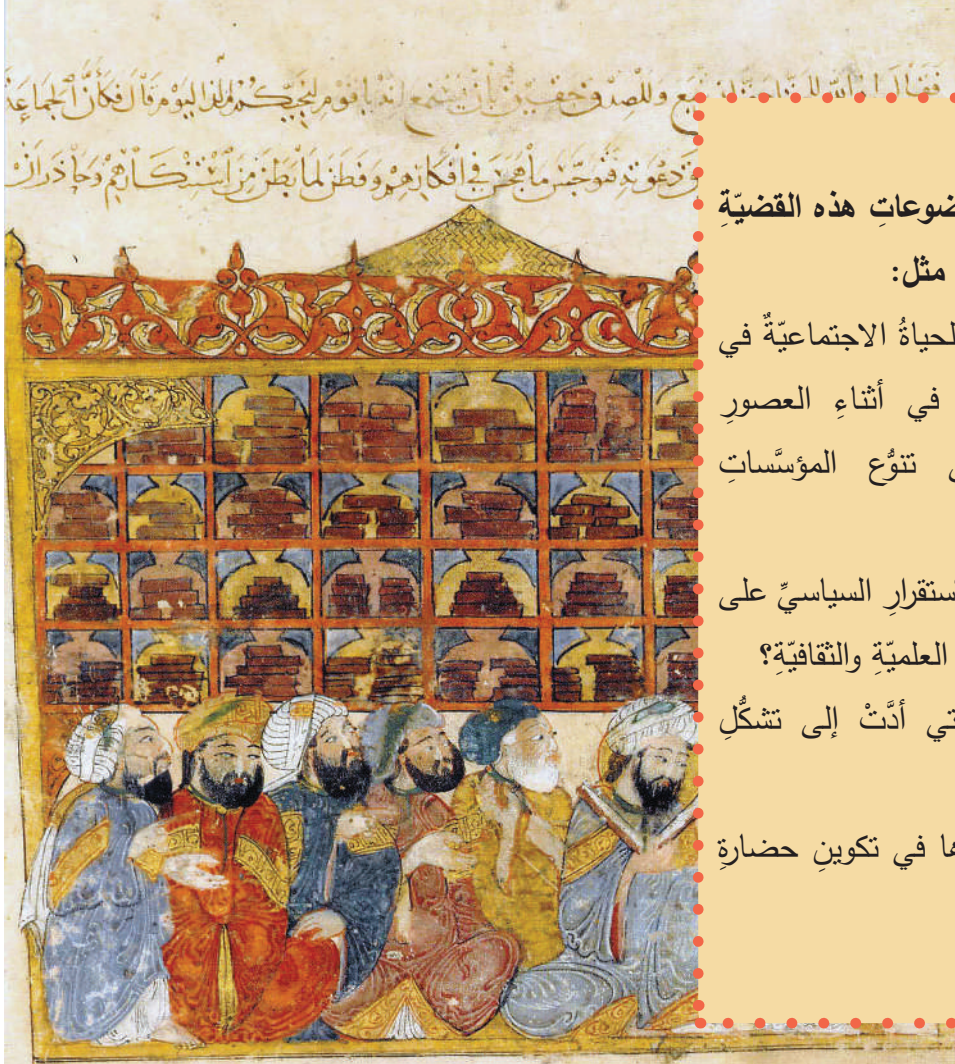 فقال
وللصدق حقيق بأن يستمع انه يا قوم لنجيكم مذ اليوم قال فكأن الجماعة
دعوته فتوجس ما هجس في أفكارهم وفطن لما بطن من استنكارهم وحاذر ان
ضوعاتِ هذه القضيّةِ
مثل:
لحياةُ الاجتماعيّةٌ في
في أثناءِ العصورِ
تنوُّع المؤسَّساتِ
ستقرارِ السياسيِّ على
العلميّةِ والثقافيّةِ؟
تي أدَّتْ إلى تشكُّلِ
ها في تكوينِ حضارةِ